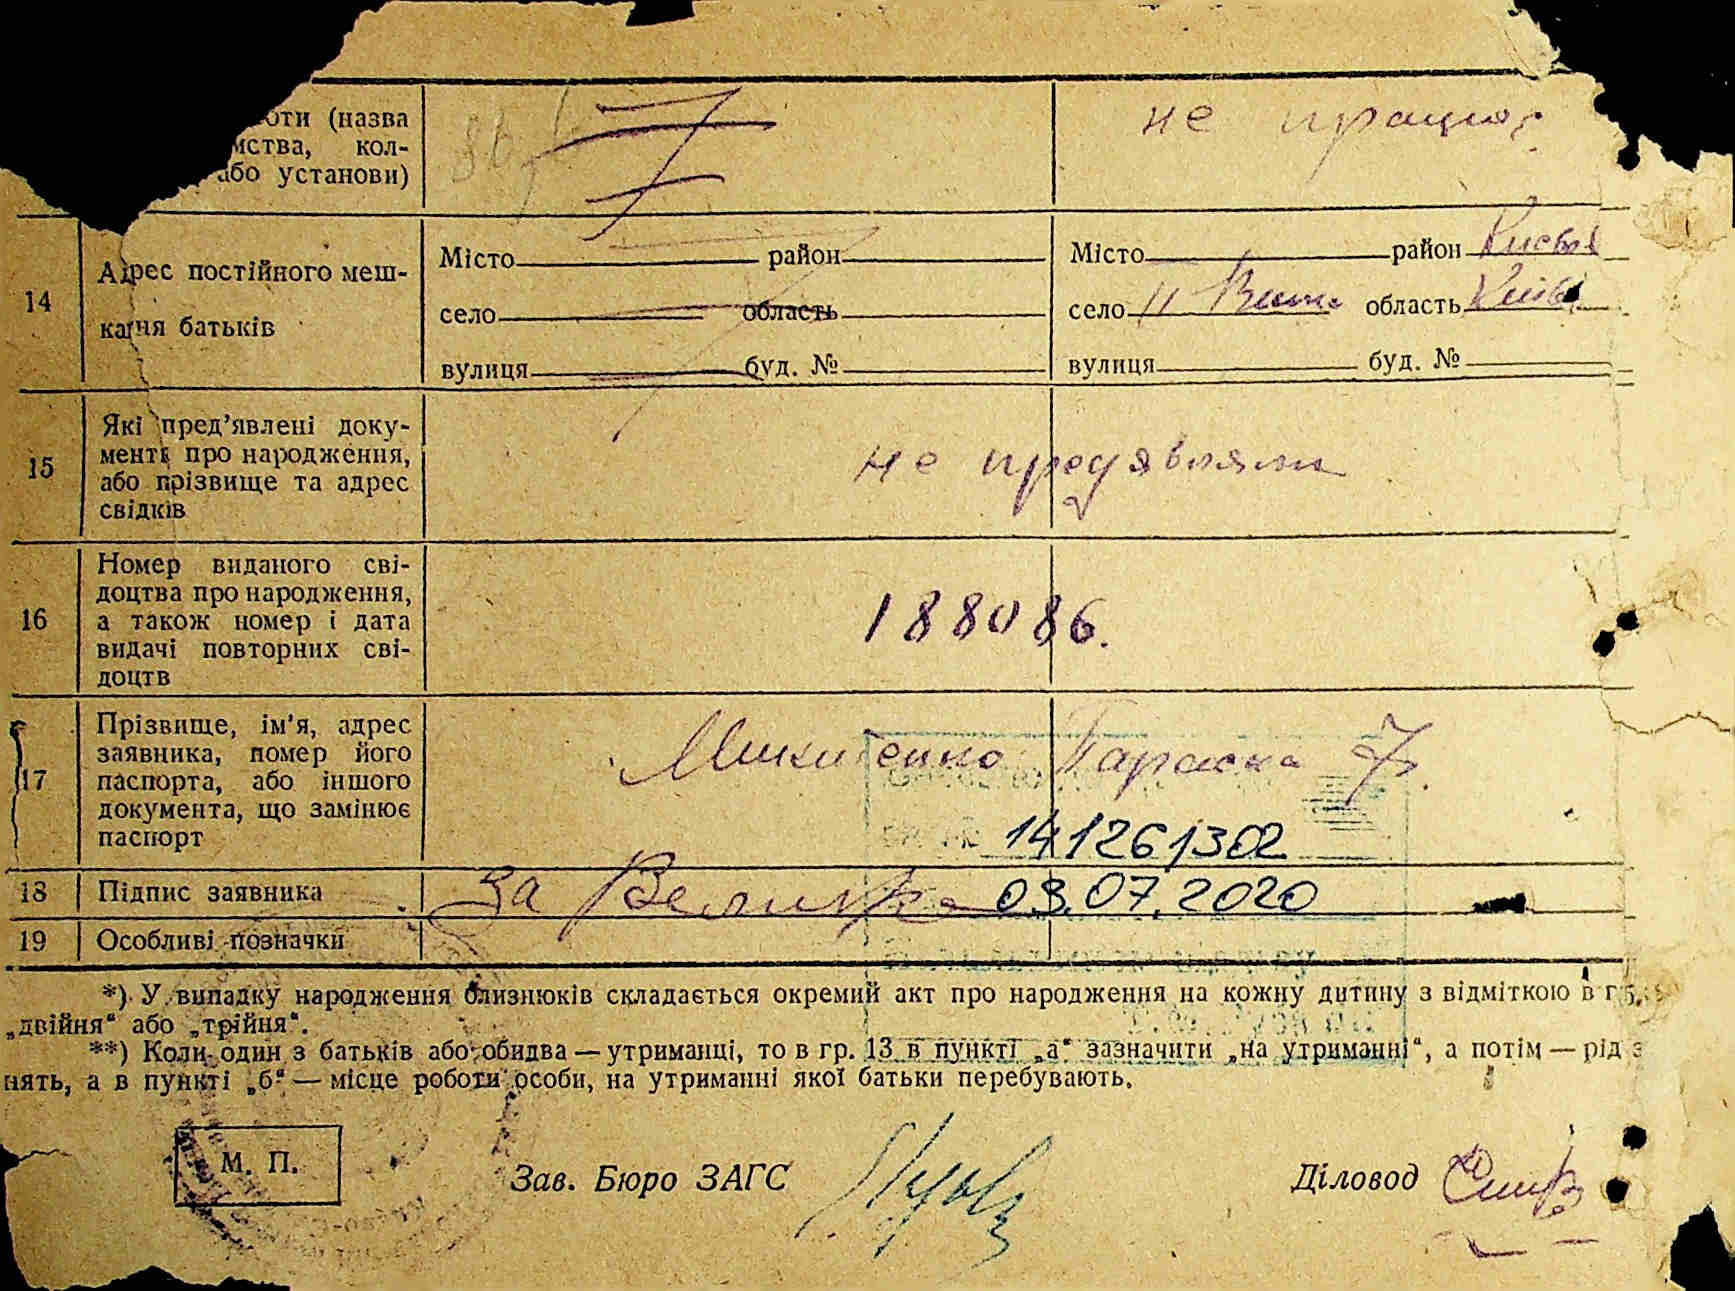 оти (назва
мства, кол-
або установи)
не працює
14
Адрес постійного меш-
кання батьків
Місто район
село область
вулиця буд. №
Місто район Києвс
село область Київ
вулиця буд. №
15
Які пред'явлені доку-
менти про народження,
або прізвище та адрес
свідків
не предявляли
16
Номер виданого сві-
доцтва про народження,
а також номер і дата
видачі повторних сві-
доцтв
188086.
17
Прізвище, ім'я, адрес
заявника, номер його
паспорта, або іншого
документа, що замінює
паспорт
Параска
141261302
18 Підпис заявника
За
03.07.2020
19 Особливі позначки
*) У випадку народження близнюків складається окремий акт про народження на кожну дитину з відміткою в гр. 5,
„двійня“ або „трійня“.
**) Коли один з батьків або обидва — утриманці, то в гр. 13 в пункті „а“ зазначити „на утриманні“, а потім — рід з
нять, а в пункті „б“ — місце роботи особи, на утриманні якої батьки перебувають.
М. П.
Зав. Бюро ЗАГС
Діловод